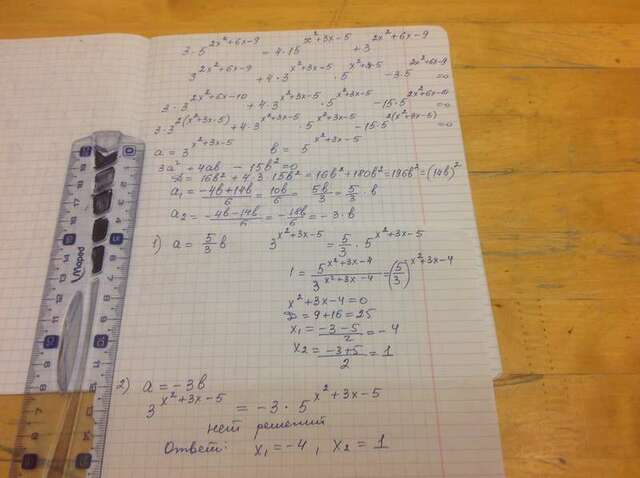 3·5^(2x²+6x-9) = 4·15^(x²+3x-5) + 3^(2x²+6x-9)
3^(2x²+6x-9) + 4·3^(x²+3x-5) · 5^(x²+3x-5) - 3·5^(2x²+6x-9) = 0
3·3^(2x²+6x-10) + 4·3^(x²+3x-5) · 5^(x²+3x-5) - 15·5^(2x²+6x-10) = 0
3·3^(2(x²+3x-5)) + 4·3^(x²+3x-5) · 5^(x²+3x-5) - 15·5^(2(x²+3x-5)) = 0
a = 3^(x²+3x-5) b = 5^(x²+3x-5)
3a² + 4ab - 15b² = 0
D = 16b² + 4·3·15b² = 16b² + 180b² = 196b² = (14b)²
a₁ = (-4b+14b)/6 = 10b/6 = 5b/3 = 5/3 · b
a₂ = (-4b-14b)/6 = -18b/6 = -3·b
1) a = 5/3 b 3^(x²+3x-5) = 5/3 · 5^(x²+3x-5)
1 = 5^(x²+3x-4)/3^(x²+3x-4) = (5/3)^(x²+3x-4)
x²+3x-4=0
D = 9+16 = 25
x₁ = (-3-5)/2 = -4
x₂ = (-3+5)/2 = 1
2) a = -3b
3^(x²+3x-5) = -3·5^(x²+3x-5)
нет решений
Ответ: x₁ = -4, x₂ = 1
Maped